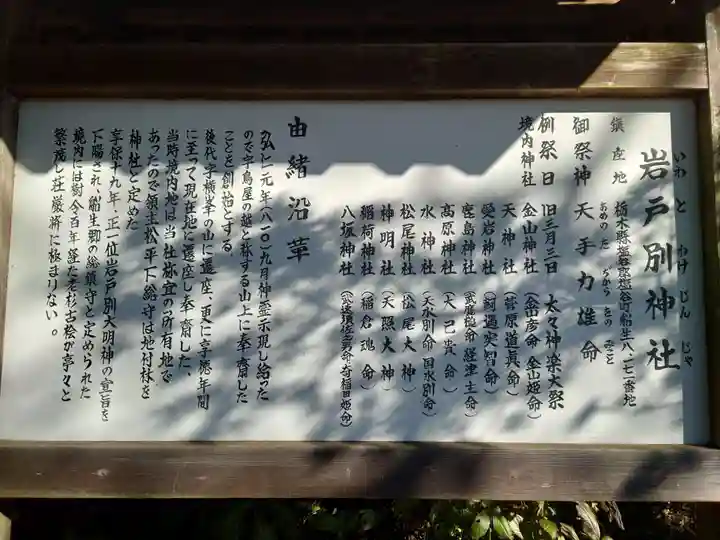 岩戸別神社
いわとわけじんじゃ
鎮座地 栃木県塩谷郡塩谷町船生八、七二番地
御祭神 天手力雄命
あめのたぢからをのみこと
例祭日 旧三月三日 太々神楽大祭
境内神社 金山神社(金山彦命 金山姫命)
天神社(菅原道真命)
愛岩神社(珂遇突智命)
鹿島神社(武甕槌命 経津主命)
高原神社(大己貴命)
水神社(天水別命 国水別命)
松尾神社(松尾大神)
神明社(天照大神)
稲荷神社(稲倉魂命)
八坂神社(武速須佐之男命 奇稲田姫命)
由緒沿革
弘仁元年(八一〇)九月神霊示現し給った
ので字鳥屋の越と称する山上に奉齋した
ことを創始とする。
後代字横峯の山に遷座、更に享徳年間
に至って現在地に遷座し奉齋した、
当時境内地は当社祢宜の所有地で
あったので領主松平下総守は地付林を
神社と定めた
享保十九年、正一位岩戸別大明神の宣旨を
下賜され、船生郷の総鎮守と定められた
境内には樹令百年を経た老杉古桧が亭々と
繁茂し荘厳将に極まりない。